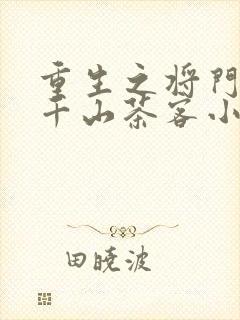 重生之将门
千山茶客小
田晓波